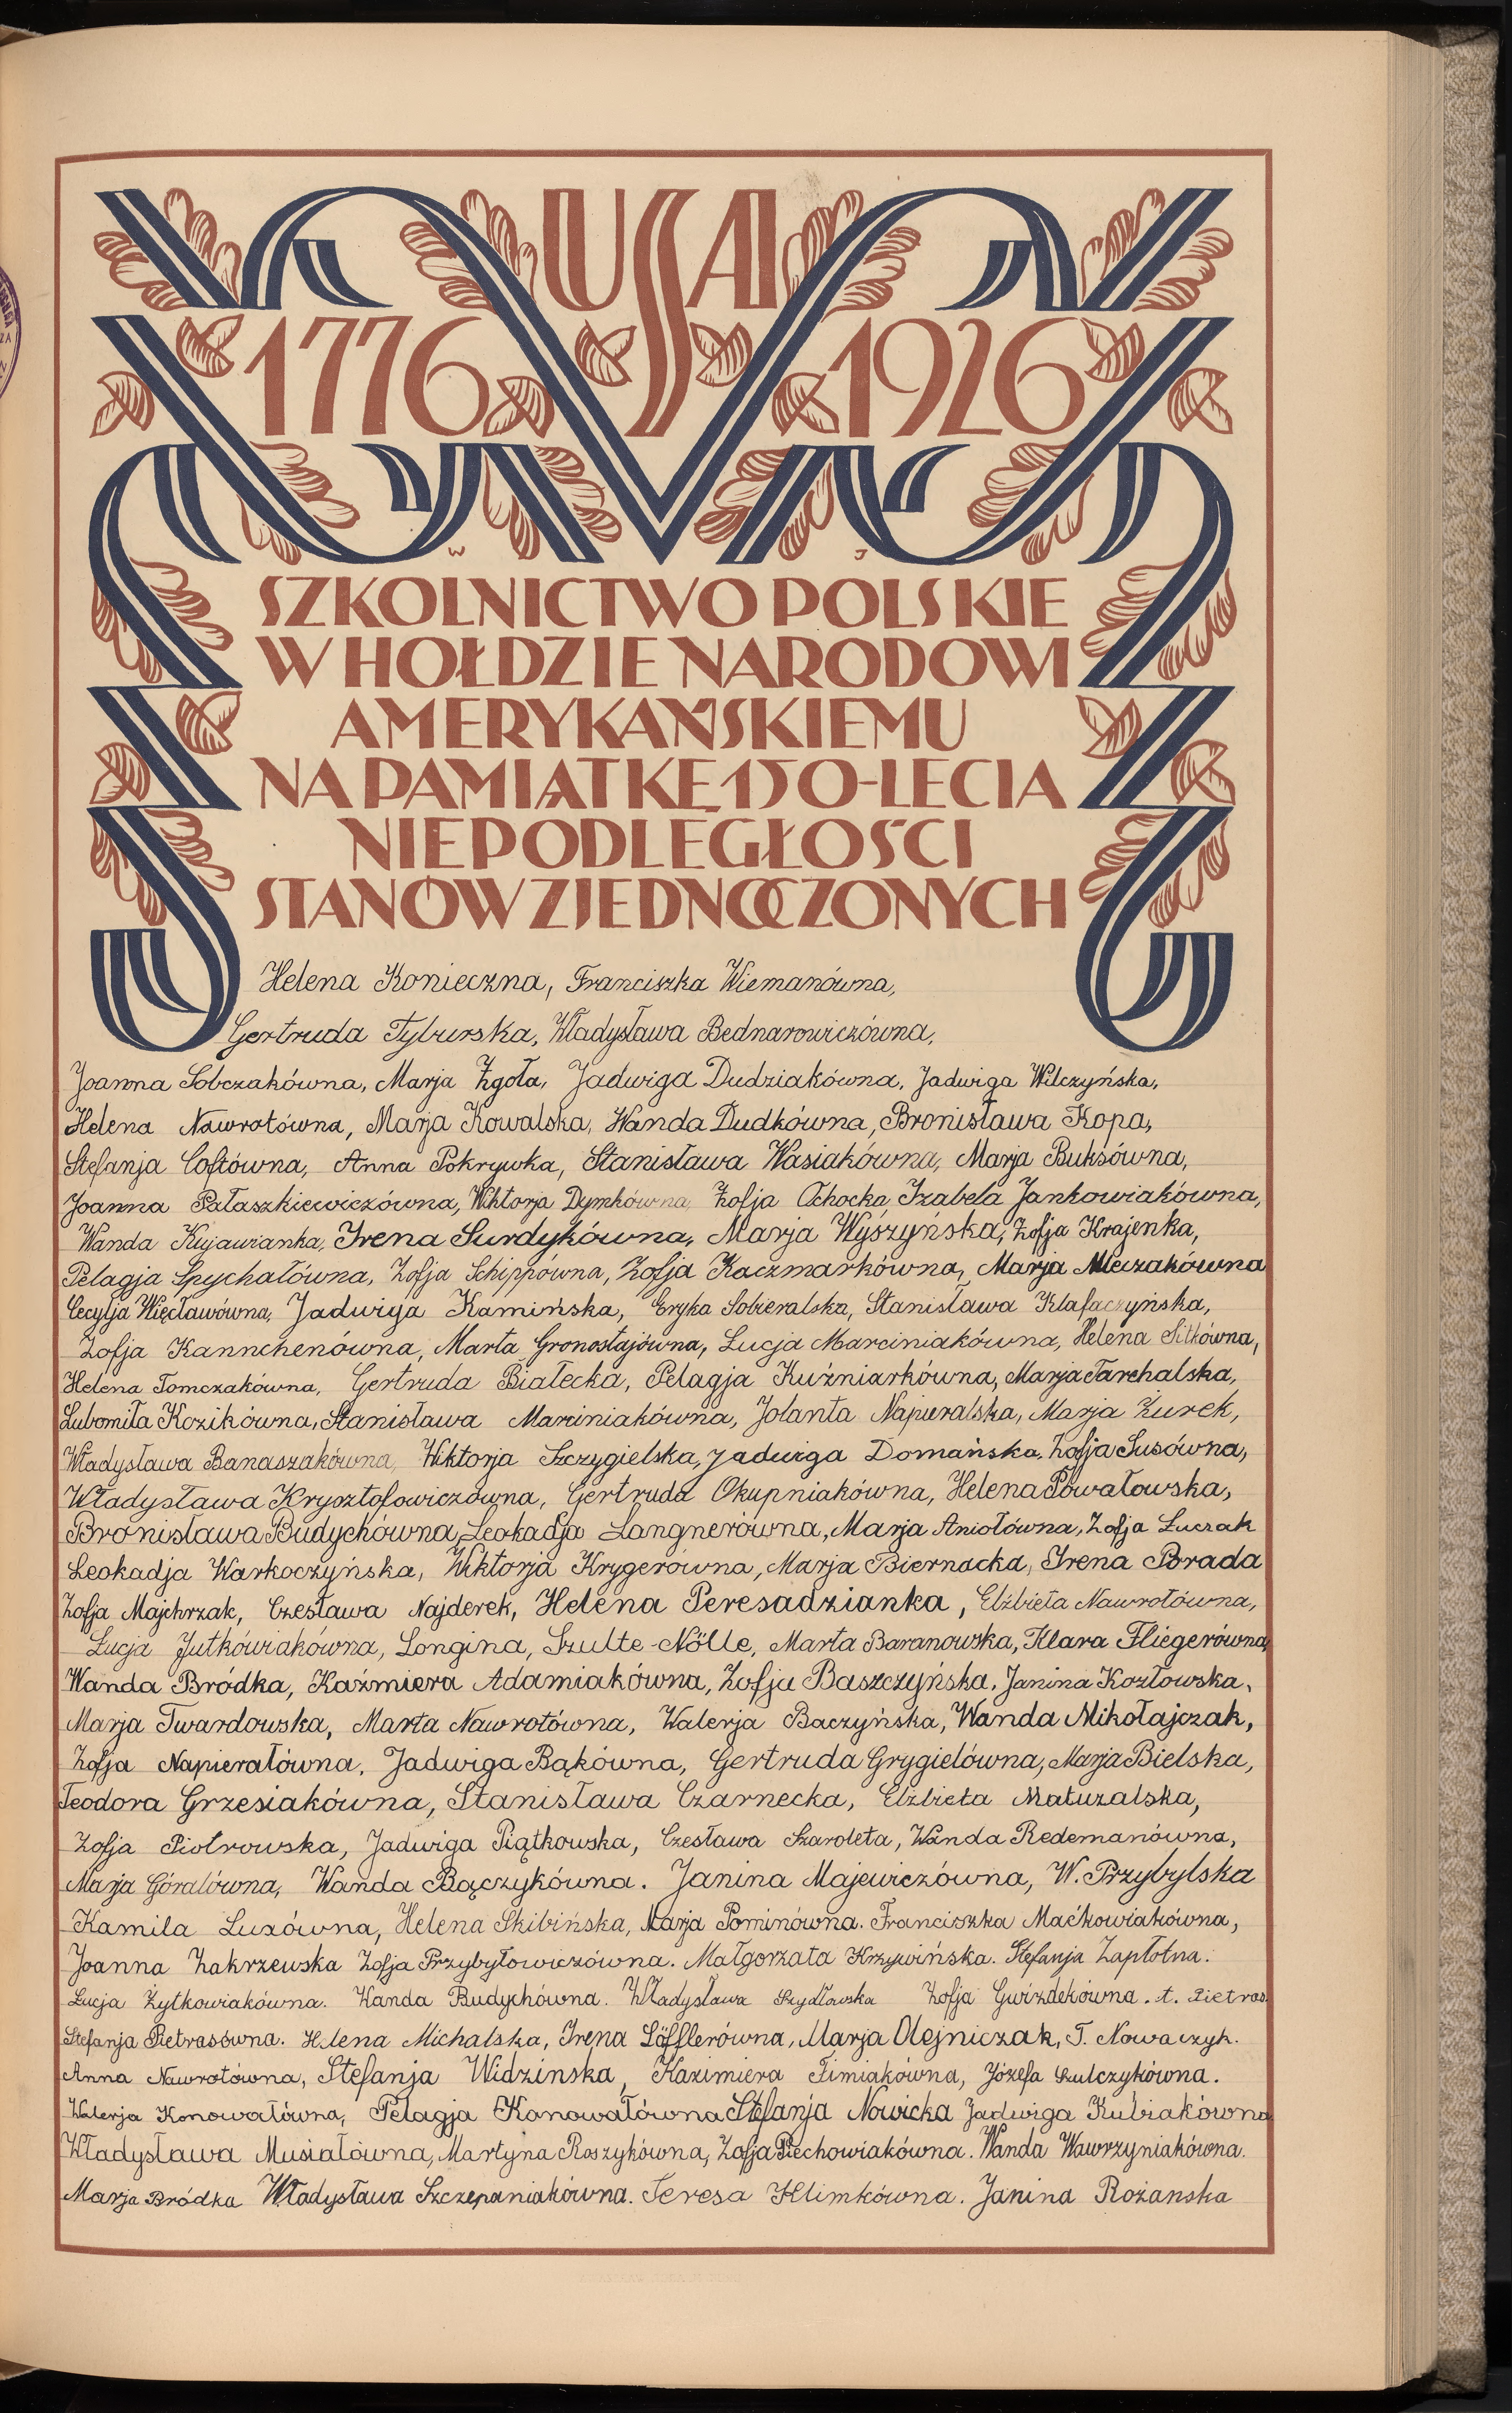 USA
1776 1926
W J
SZKOLNICTWO POLSKIE
W HOŁDZIE NARODOWI
AMERYKAŃSKIEMU
NA PAMIĄTKĘ 150-LECIA
NIEPODLEGŁOŚCI
STANÓW ZJEDNOCZONYCH
Helena Konieczna, Franciszka Wiemanówna,
Gertruda Tyburska, Władysława Bednarowiczówna,
Joanna Sobczakówna, Marja Zgoła, Jadwiga Dudziakówna, Jadwiga Wilczyńska,
Helena Nawrotówna, Marja Kowalska, Wanda Dudkówna, Bronisława Kopa,
Stefanja Coftówna, Anna Pokrywka, Stanisława Wasiakówna, Marja Buksówna,
Joanna Pałaszkiewiczówna, Wiktorja Dymkówna, Zofja Ochocka, Izabela Jankowiakówna,
Wanda Kujawianka, Irena Surdykówna, Marja Wyszyńska, Zofja Krajenka,
Pelagja Spychałówna, Zofja Schippówna, Zofja Kaczmarkówna, Marja Mleczakówna
Cecylja Więcławówna, Jadwiga Kamińska, Eryka Sobieralska, Stanisława Klafaczyńska,
Zofja Kannchenówna, Marta Gronostajówna, Lucja Marciniakówna, Helena Sitkówna,
Helena Tomczakówna, Gertruda Białecka, Pelagja Kuźniarkówna, Marja Tarchalska,
Lubomiła Kozikówna, Stanisława Marciniakówna, Jolanta Napieralska, Marja Żurek,
Władysława Banaszakówna, Wiktorja Szczygielska, Jadwiga Domańska, Zofja Susówna,
Władysława Krysztofowiczówna, Gertruda Okupniakówna, Helena Powałowska,
Bronisława Budychówna, Leokadja Langnerówna, Marja Aniołówna, Zofja Luczak
Leokadja Warkoczyńska, Wiktorja Krygerówna, Marja Biernacka, Irena Porada
Zofja Majchrzak, Czesława Najderek, Helena Peresadzianka, Elżbieta Nawrotówna,
Łucja Jutkówiakówna, Longina, Szulte-Nölle, Marta Baranowska, Klara Fliegerówna,
Wanda Bródka, Kaźmiera Adamiakówna, Zofja Baszczyńska, Janina Kozłowska,
Marja Twardowska, Marta Nawrotówna, Walerja Baczyńska, Wanda Mikołajczak,
Zofja Napierałówna, Jadwiga Bąkówna, Gertruda Grygielówna, Marja Bielska,
Teodora Grzesiakówna, Stanisława Czarnecka, Elżbieta Matuzalska,
Zofja Piotrowska, Jadwiga Piątkowska, Czesława Szaroleta, Wanda Redemanówna,
Marja Góralówna, Wanda Bączykówna. Janina Majewiczówna, W. Przybylska
Kamila Luxówna, Helena Skibińska, Marja Pominówna. Franciszka Maćkowiakówna,
Joanna Zakrzewska Zofja Przybyłowiczówna. Małgorzata Krzywińska. Stefanja Zapłotna.
Lucja Żytkowiakówna. Wanda Budychówna. Władysława Szydłowska Zofja Gwizdekówna. t. Pietras.
Stefanja Pietrasówna. Helena Michalska, Irena Löfflerówna, Marja Olejniczak, T. Nowaczyk.
Anna Nawrotówna, Stefanja Widzinska, Kazimiera Timiakówna, Józefa Szulczykówna.
Walerja Konowałówna, Pelagja Konowałówna Stefanja Nowicka Jadwiga Kubiakówna
Władysława Musiałówna, Martyna Roszykówna, Zofja Piechowiakówna. Wanda Wawrzyniakówna.
Marja Bródka Władysława Szczepaniakówna. Teresa Klimkówna. Janina Rożanska